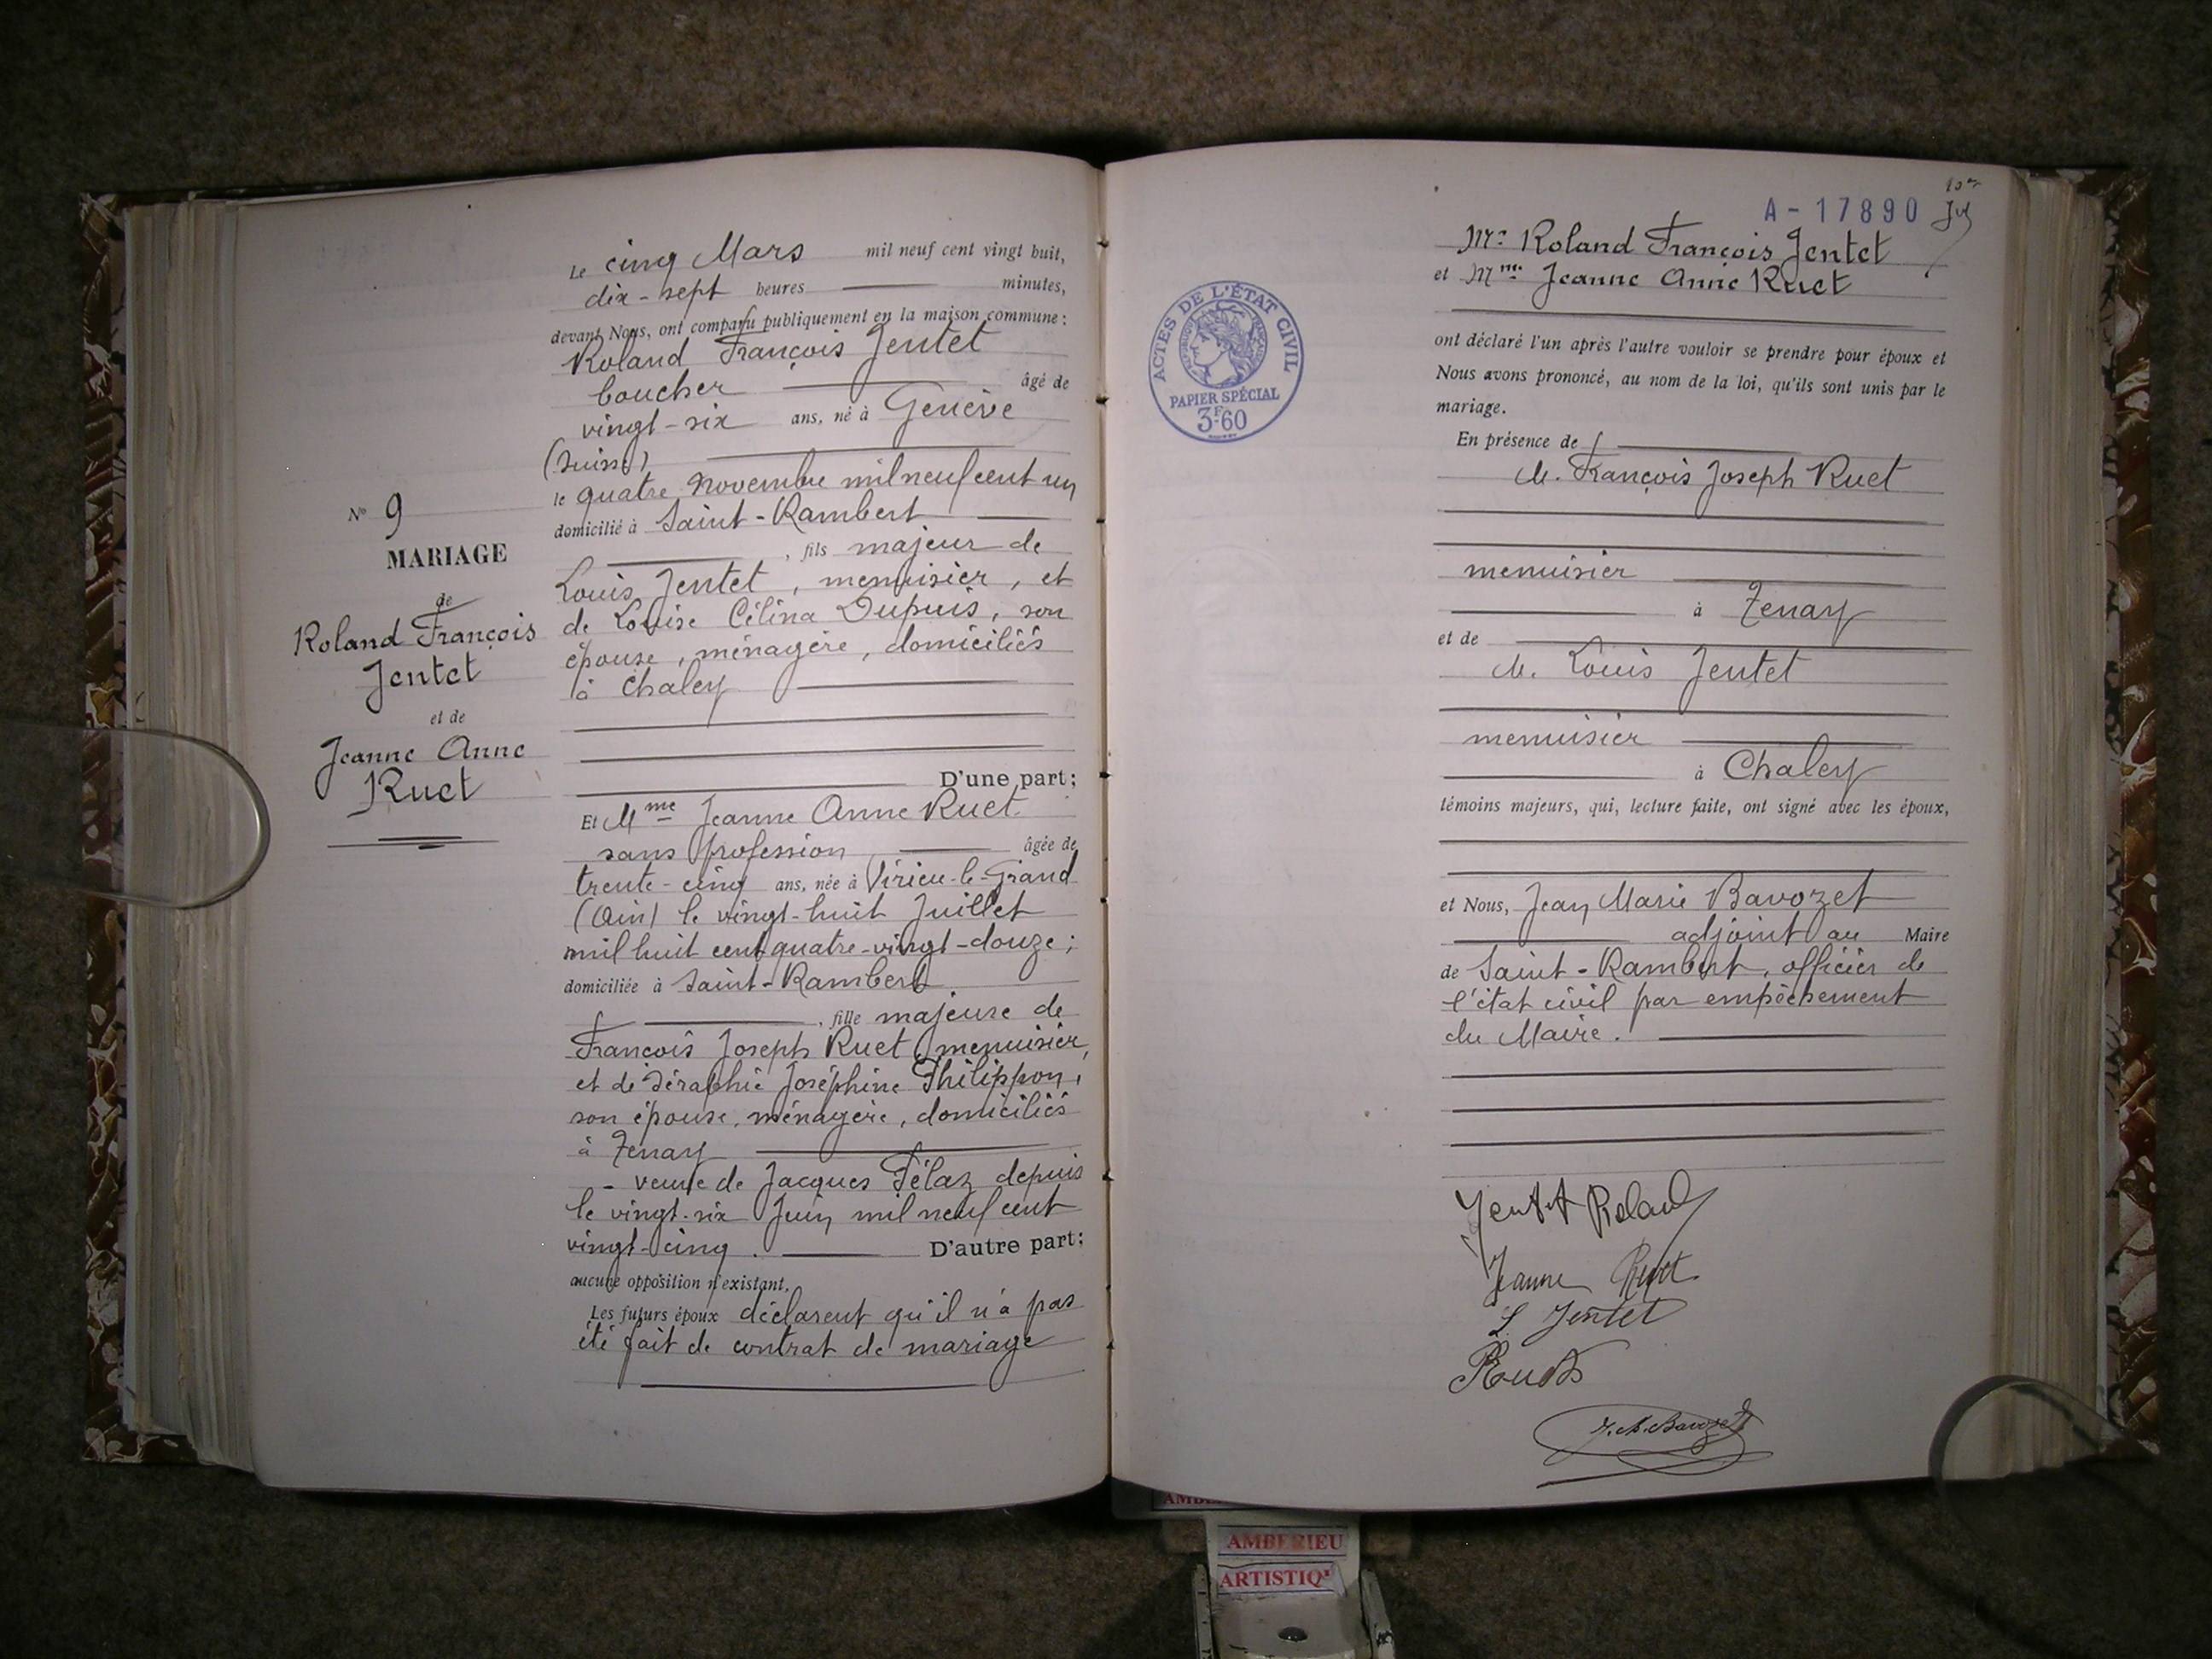 Le cinq Mars mil neuf cent vingt huit,
dix-sept heures minutes,
devant Nous, ont comparu publiquement en la maison commune :
Roland François Jentet
boucher âgé de
vingt-six ans, né à Genève
(Suisse)
le quatre novembre mil neuf cent un
domicilié à Saint-Rambert
, fils majeur de
Louis Jentet, menuisier, et
de Louise Célina Dupuis, son
épouse, ménagère, domiciliés
à Chaley
D'une part;
Et Mme Jeanne Anne Ruet
sans profession âgée de
trente-cinq ans, née à Virieu-le-Grand
(Ain) le vingt-huit Juillet
mil huit cent quatre-vingt-douze ;
domiciliée à Saint-Rambert
, fille majeure de
François Joseph Ruet, menuisier,
et de Séraphie Joséphine Philippon,
son épouse, ménagère, domiciliés
à Tenay
- veuve de Jacques Félaz depuis
le vingt-six Juin mil neuf cent
vingt-cinq. D'autre part;
aucune opposition n'existant.
Les futurs époux déclarent qu'il n'a pas
été fait de contrat de mariage
N° 9
MARIAGE
de
Roland François
Jentet
et de
Jeanne Anne
Ruet
A-17890
Mr Roland François Jentet
et Mme Jeanne Anne Ruet
ont déclaré l'un après l'autre vouloir se prendre pour époux et
Nous avons prononcé, au nom de la loi, qu'ils sont unis par le
mariage.
En présence de
M. François Joseph Ruet
menuisier
à Tenay
et de
M. Louis Jentet
menuisier
à Chaley
témoins majeurs, qui, lecture faite, ont signé avec les époux,
et Nous, Jean Marie Bavozet
adjoint au Maire
de Saint-Rambert, officier de
l'état civil par empêchement
du Maire.
Jentet Roland
Jeanne Ruet
L. Jentet
Ruet
J. M. Bavozet
ACTES DE L'ÉTAT CIVIL
RÉPUBLIQUE FRANÇAISE
PAPIER SPÉCIAL
3F60
AMBERIEU
ARTISTIQ